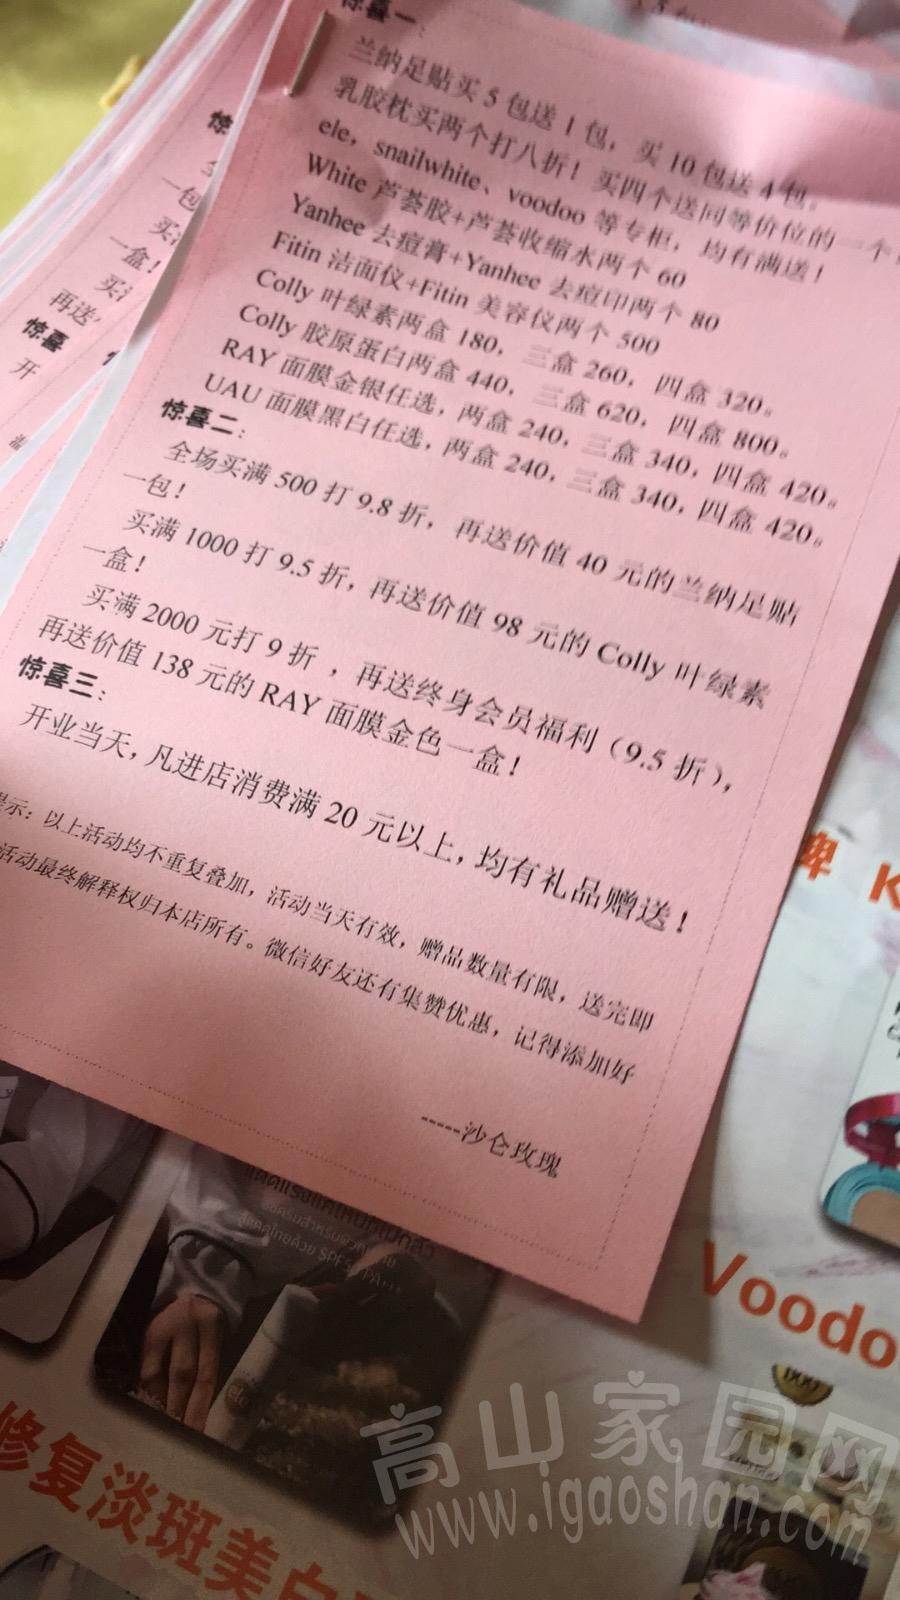 惊喜一:
兰纳足贴买 5 包送 1 包，买 10 包送 4 包。
乳胶枕买两个打八折！买四个送同等价位的一个
ele，snailwhite、voodoo 等专柜，均有满送！
White 芦荟胶+芦荟收缩水两个 60
Yanhee 去痘膏+Yanhee 去痘印两个 80
Fitin 洁面仪+Fitin 美容仪两个 500
Colly 叶绿素两盒 180，三盒 260，四盒 320。
Colly 胶原蛋白两盒 440，三盒 620，四盒 800。
RAY 面膜金银任选，两盒 240，三盒 340，四盒 420。
UAU 面膜黑白任选，两盒 240，三盒 340，四盒 420。
惊喜二:
全场买满 500 打 9.8 折，再送价值 40 元的兰纳足贴
一包！
买满 1000 打 9.5 折，再送价值 98 元的 Colly 叶绿素
一盒！
买满 2000 元打 9 折 ，再送终身会员福利（9.5 折），
再送价值 138 元的 RAY 面膜金色一盒！
惊喜三:
开业当天，凡进店消费满 20 元以上，均有礼品赠送！
提示：以上活动均不重复叠加，活动当天有效，赠品数量有限，送完即
活动最终解释权归本店所有。微信好友还有集赞优惠，记得添加好
-----沙仑玫瑰
牌 K
Voodo
修复淡斑美白
高山家园网
www.igaoshan.com